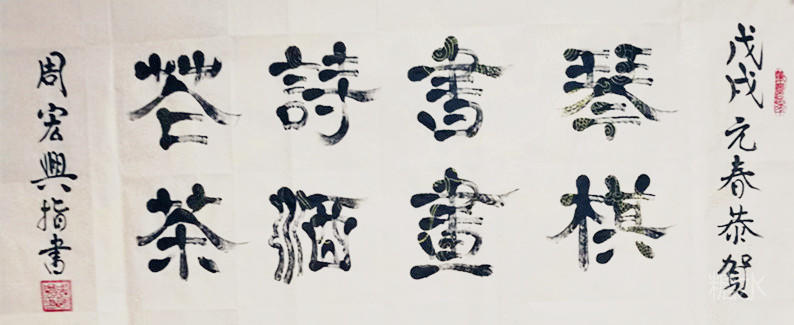 戊戌元春恭贺
琴棋
書畫
詩酒
花茶
周宏興指書
糖水